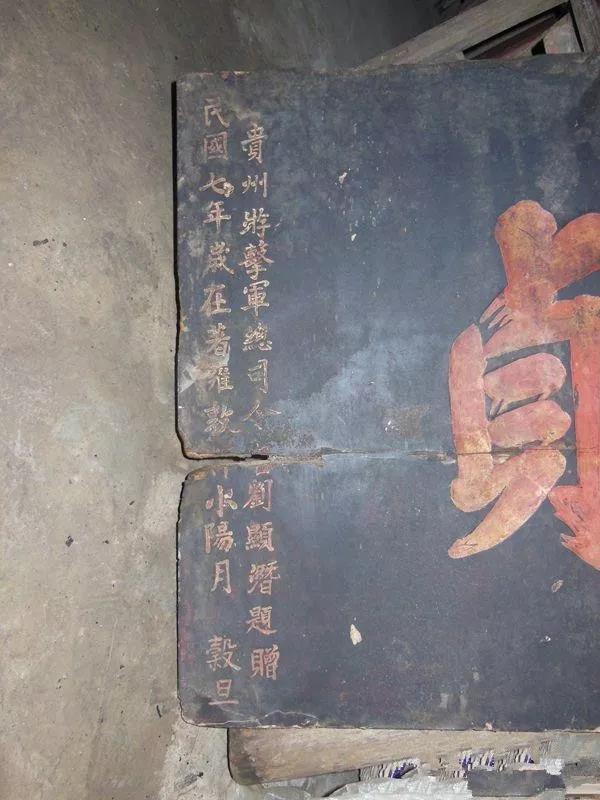 貞
貴州游擊軍總司令官劉顯潛題贈
民國七年歲在著雍敦小陽月 穀旦